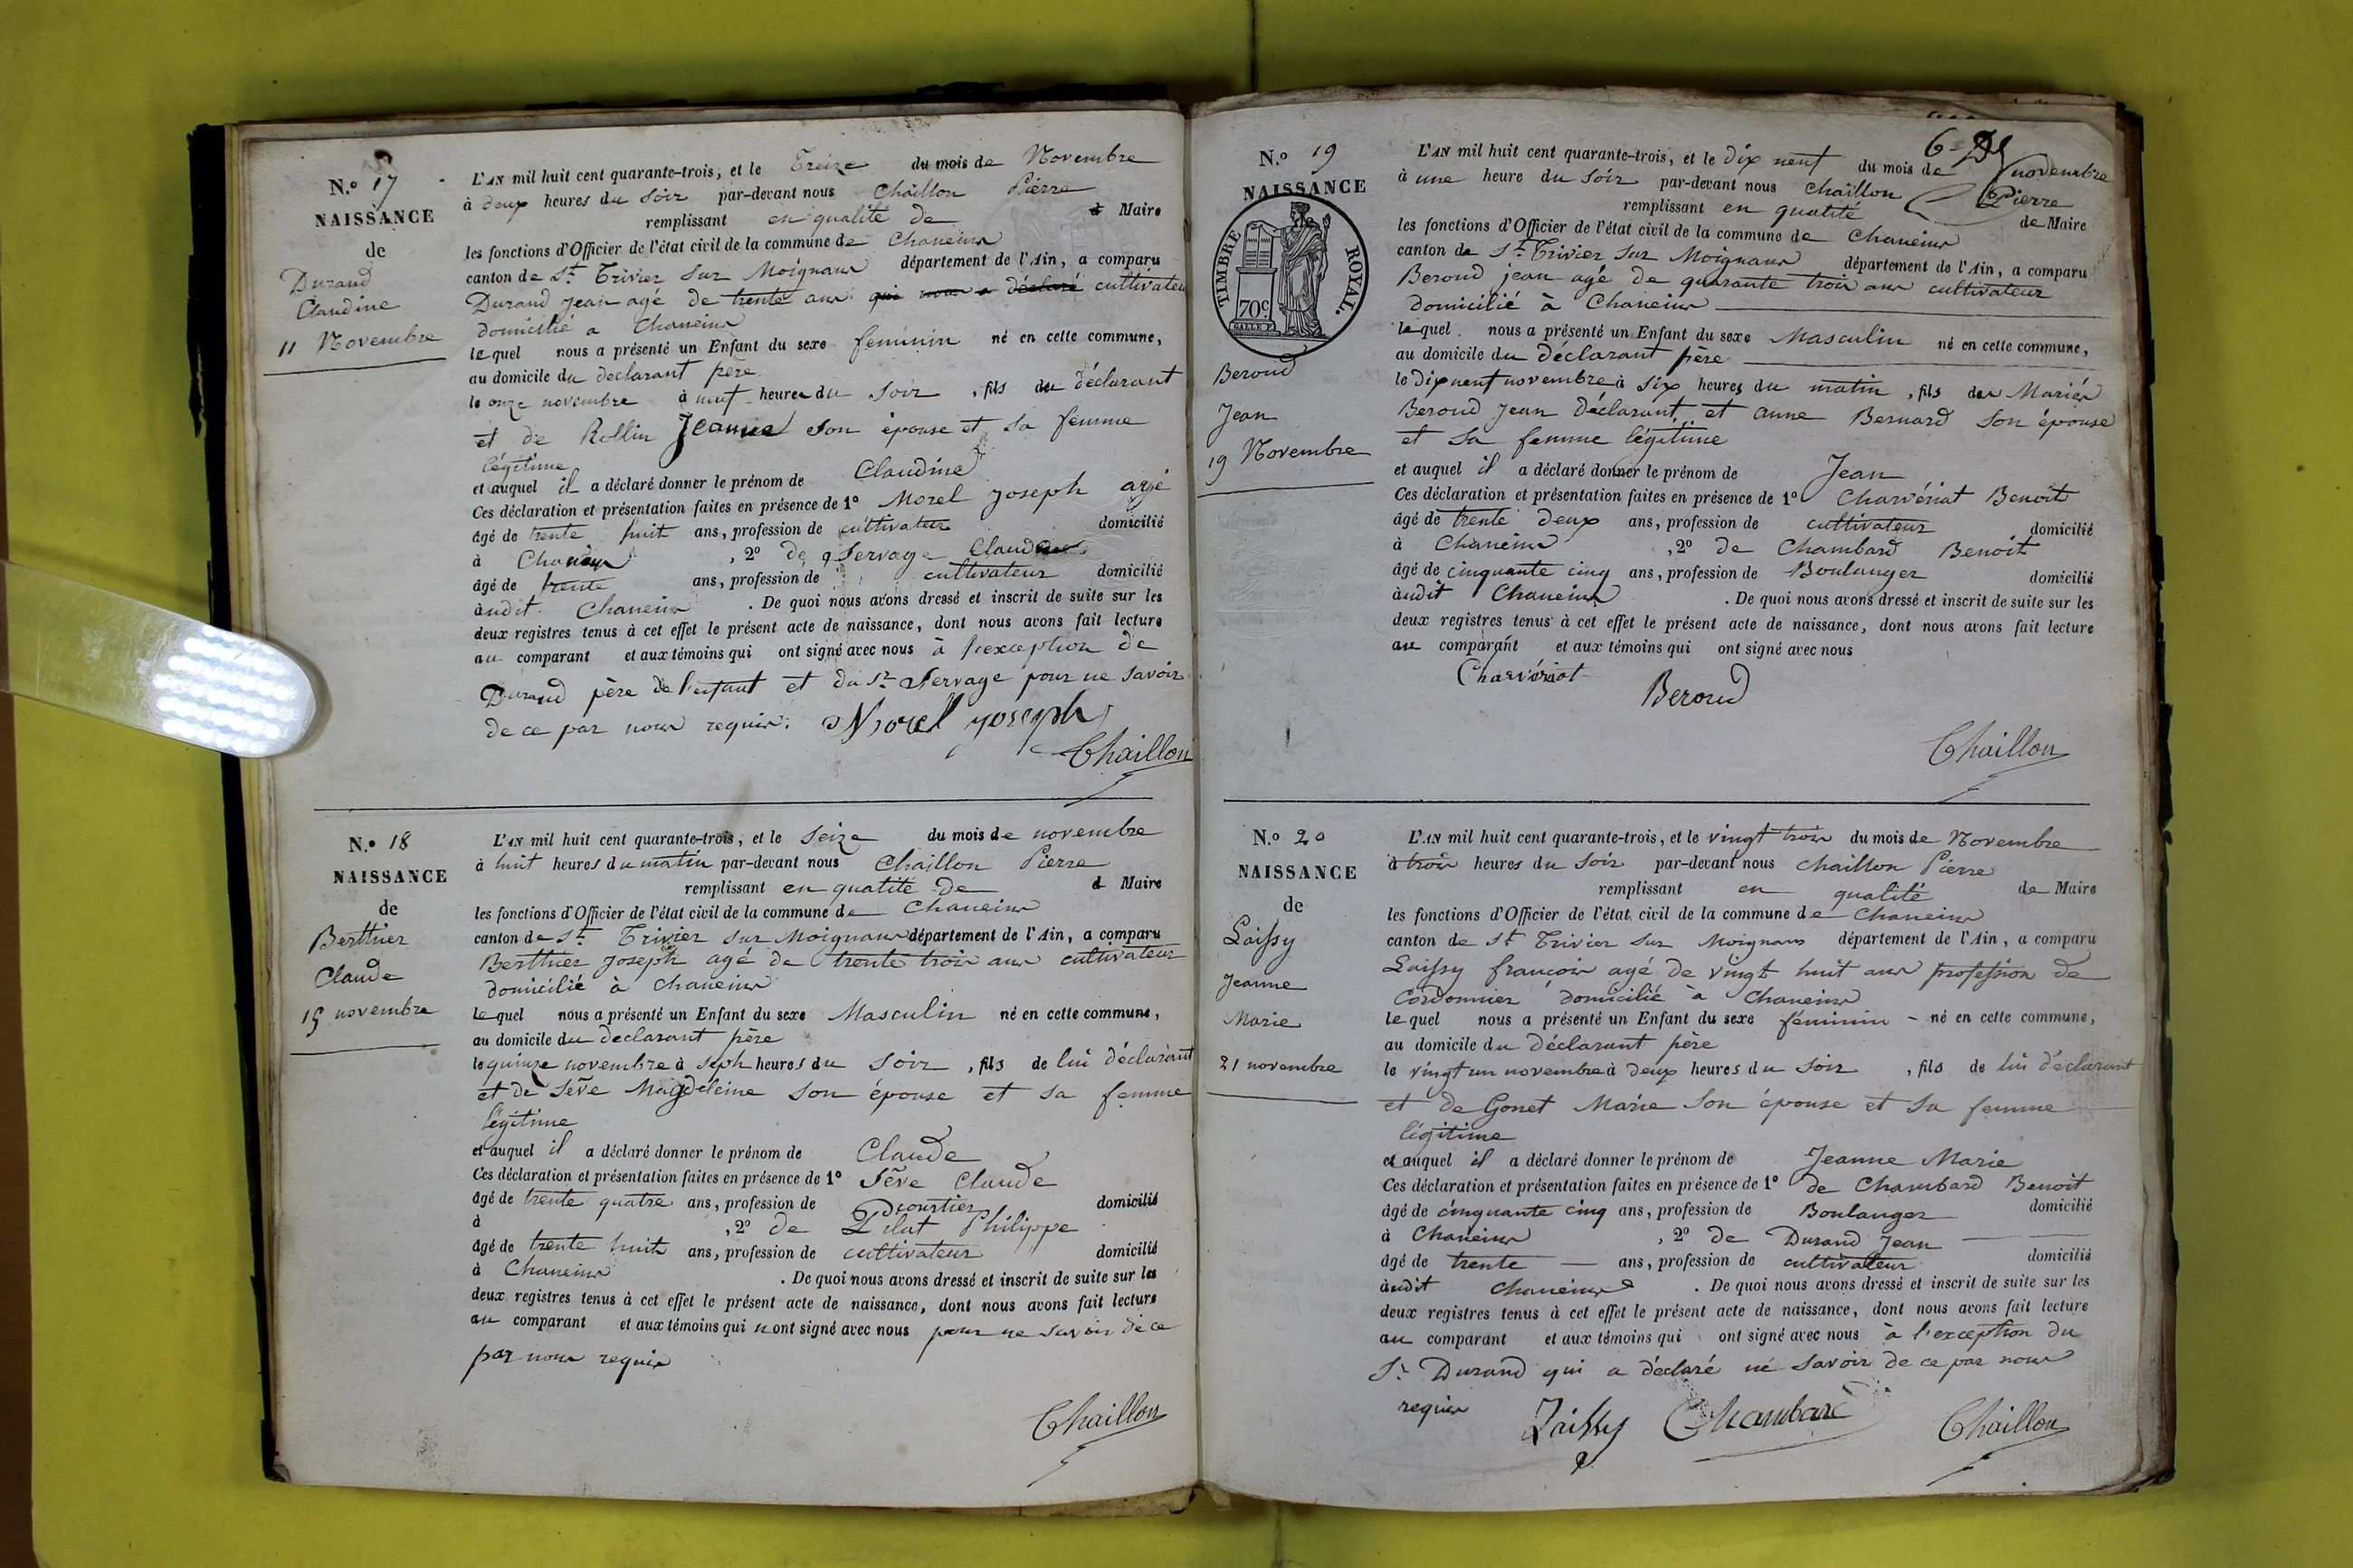 N.o 17
NAISSANCE
de
Durand
Claudine
11 Novembre
L'AN mil huit cent quarante-trois, et le Treize du mois de Novembre
à deux heures du Soir par-devant nous Chaillon Pierre
remplissant en qualité de d Maire
les fonctions d'Officier de l'état civil de la commune de Chaneins
canton de St. Trivier Sur Moignans département de l'Ain, a comparu
Durand Jean agé de trente ans qui nous a déclaré cultivateur
domicilié a Chaneins
lequel nous a présenté un Enfant du sexe feminin né en cette commune,
au domicile du declarant père
le onze novembre à neuf heures du Soir, fils du déclarant
et de Rollin Jeanne son épouse et sa femme
légitime
et auquel il a déclaré donner le prénom de Claudine
Ces déclaration et présentation faites en présence de 1º Morel Joseph agé
âgé de trente huit ans, profession de cultivateur domicilié
à Chaneins, 2º de Servage Claude
âgé de trente ans, profession de cultivateur domicilié
àudit Chaneins. De quoi nous avons dressé et inscrit de suite sur les
deux registres tenus à cet effet le présent acte de naissance, dont nous avons fait lecture
au comparant et aux témoins qui ont signé avec nous à l'exception de
Durand père de l'enfant et du Sr. Servage pour ne savoir
de ce par nous requis. Morel Joseph
Chaillon
N.o 18
NAISSANCE
de
Berthier
Claude
15 novembre
L'AN mil huit cent quarante-trois, et le Seize du mois de novembre
à huit heures du matin par-devant nous Chaillon Pierre
remplissant en qualité de d Maire
les fonctions d'Officier de l'état civil de la commune de Chaneins
canton de St. Trivier sur Moignans département de l'Ain, a comparu
Berthier Joseph agé de trente trois ans cultivateur
domicilié à Chaneins
lequel nous a présenté un Enfant du sexe Masculin né en cette commune,
au domicile du declarant père
le quinze novembre à seph heures du Soir, fils de lui déclarant
et de Sève Magdeleine son épouse et sa femme
légitime
et auquel il a déclaré donner le prénom de Claude
Ces déclaration et présentation faites en présence de 1º Sève Claude
âgé de trente quatre ans, profession de domicilié
à, 2º de Pilat Philippe
âgé de trente huit ans, profession de cultivateur domicilié
à Chaneins. De quoi nous avons dressé et inscrit de suite sur les
deux registres tenus à cet effet le présent acte de naissance, dont nous avons fait lecture
au comparant et aux témoins qui n'ont signé avec nous pour ne savoir de ce
par nous requis
Chaillon
6
N.o 19
NAISSANCE
TIMBRE ROYAL.
70c
Beroud
Jean
19 Novembre
L'AN mil huit cent quarante-trois, et le dix neuf du mois de novembre
à une heure du Soir par-devant nous Chaillon Pierre
remplissant en qualité de Maire
les fonctions d'Officier de l'état civil de la commune de Chaneins
canton de St. Trivier sur Moignans département de l'Ain, a comparu
Beroud jean agé de quarante trois ans cultivateur
domicilié à Chaneins
lequel nous a présenté un Enfant du sexe Masculin né en cette commune,
au domicile du déclarant père
le dixneuf novembre à six heures du matin, fils des Mariés
Beroud Jean déclarant et anne Bernard son épouse
et sa femme légitime
et auquel il a déclaré donner le prénom de Jean
Ces déclaration et présentation faites en présence de 1º Charvériat Benoit
âgé de trente deux ans, profession de cultivateur domicilié
à Chaneins, 2º de Chambard Benoit
âgé de cinquante cinq ans, profession de Boulanger domicilié
àudit Chaneins. De quoi nous avons dressé et inscrit de suite sur les
deux registres tenus à cet effet le présent acte de naissance, dont nous avons fait lecture
au comparant et aux témoins qui ont signé avec nous
Charvériat
Beroud
Chaillon
N.o 20
NAISSANCE
de
Laissy
Jeanne
Marie
21 novembre
L'AN mil huit cent quarante-trois, et le vingt trois du mois de Novembre
à trois heures du Soir par-devant nous Chaillon Pierre
remplissant en qualité de Maire
les fonctions d'Officier de l'état civil de la commune de Chaneins
canton de St Trivier sur Moignans département de l'Ain, a comparu
Laissy françois agé de vingt huit ans profession de
Cordonnier domicilié à Chaneins
lequel nous a présenté un Enfant du sexe féminin né en cette commune,
au domicile du déclarant père
le vingt un novembre à deux heures du Soir, fils de lui déclarant
et de Gonet Marie Son épouse et sa femme
légitime
et auquel il a déclaré donner le prénom de Jeanne Marie
Ces déclaration et présentation faites en présence de 1º de Chambard Benoit
âgé de cinquante cinq ans, profession de Boulanger domicilié
à Chaneins, 2º de Durand Jean
âgé de trente ans, profession de cultivateur domicilié
àudit Chaneins. De quoi nous avons dressé et inscrit de suite sur les
deux registres tenus à cet effet le présent acte de naissance, dont nous avons fait lecture
au comparant et aux témoins qui ont signé avec nous à l'exception du
Sr. Durand qui a déclaré ne savoir de ce par nous
requis Laissy Chambard Chaillon